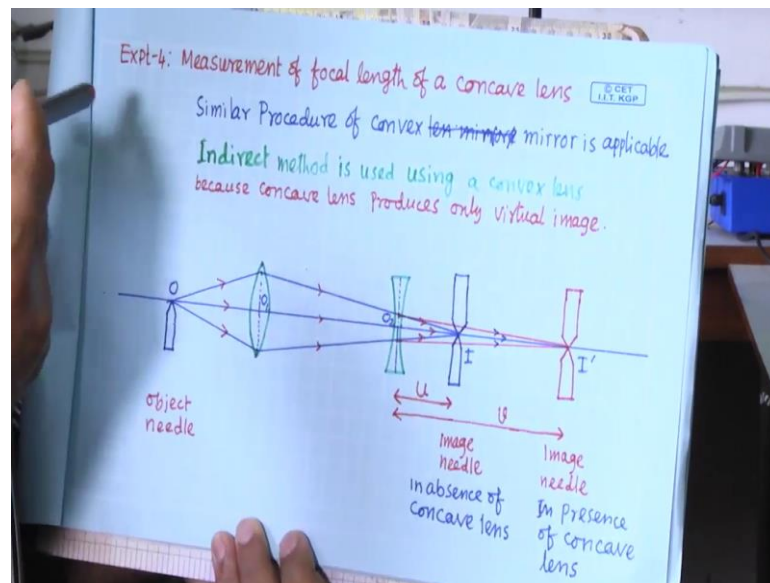 Expt-4: Measurement of focal length of a concave lens
© CET
I.I.T. KGP
Similar Procedure of convex mirror is applicable
Indirect method is used using a convex lens
because concave lens produces only virtual image.
O
O₁
O₂
I
I'
u
v
object
needle
Image
needle
in absence of
concave lens
Image
needle
In presence
of concave
lens